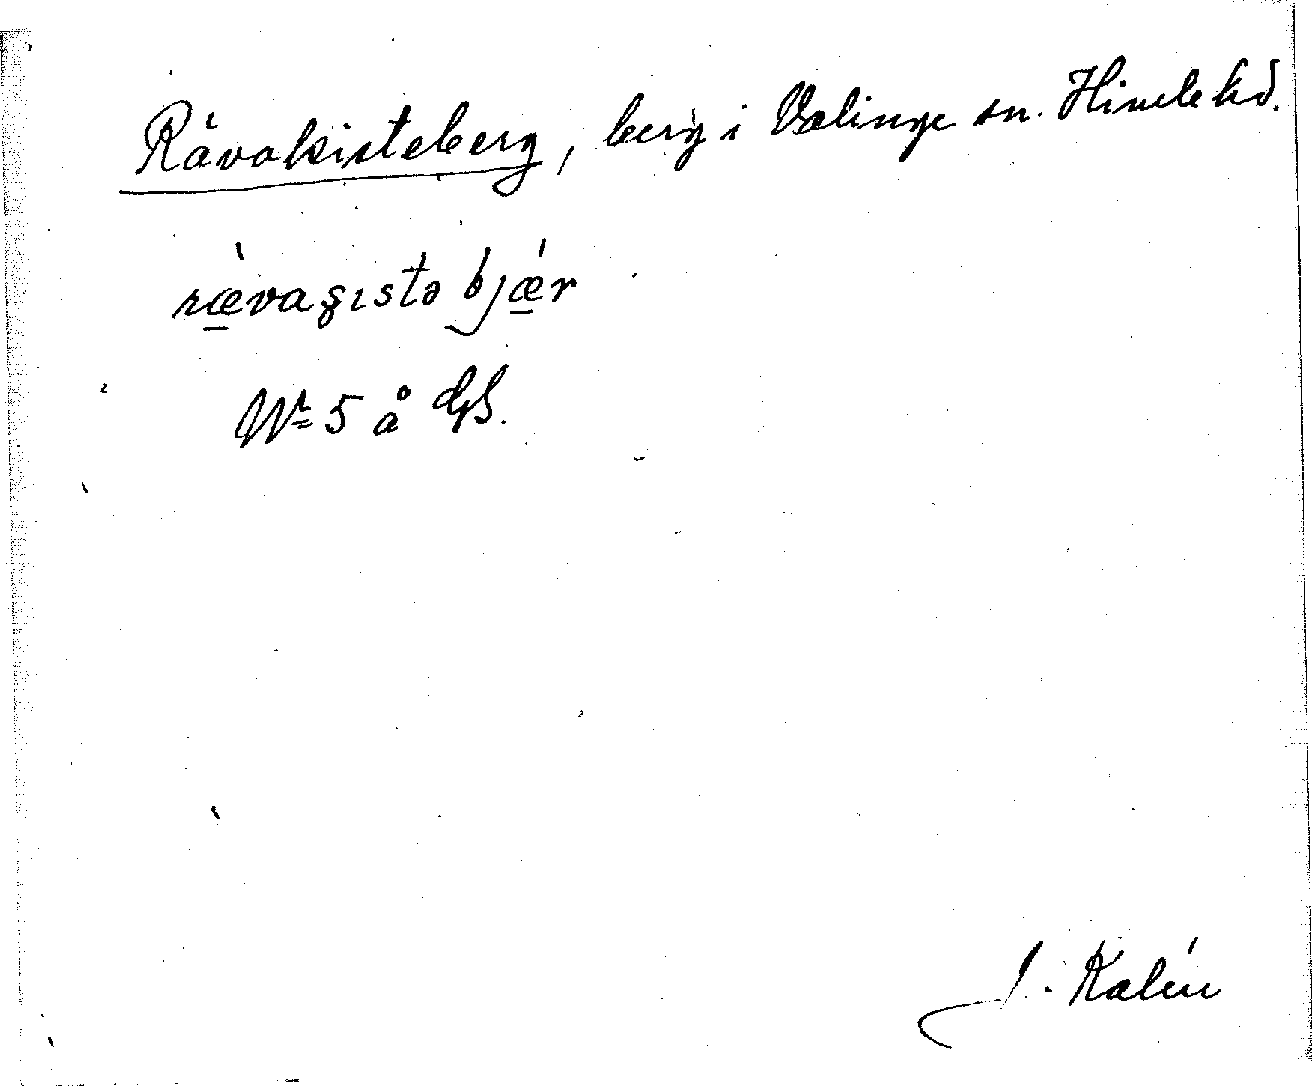 Rävakisteberg, berg i Valinge sn. Himle hd.
rævaʂıstə bjær
Nr 5 å GS.
J. Kalén